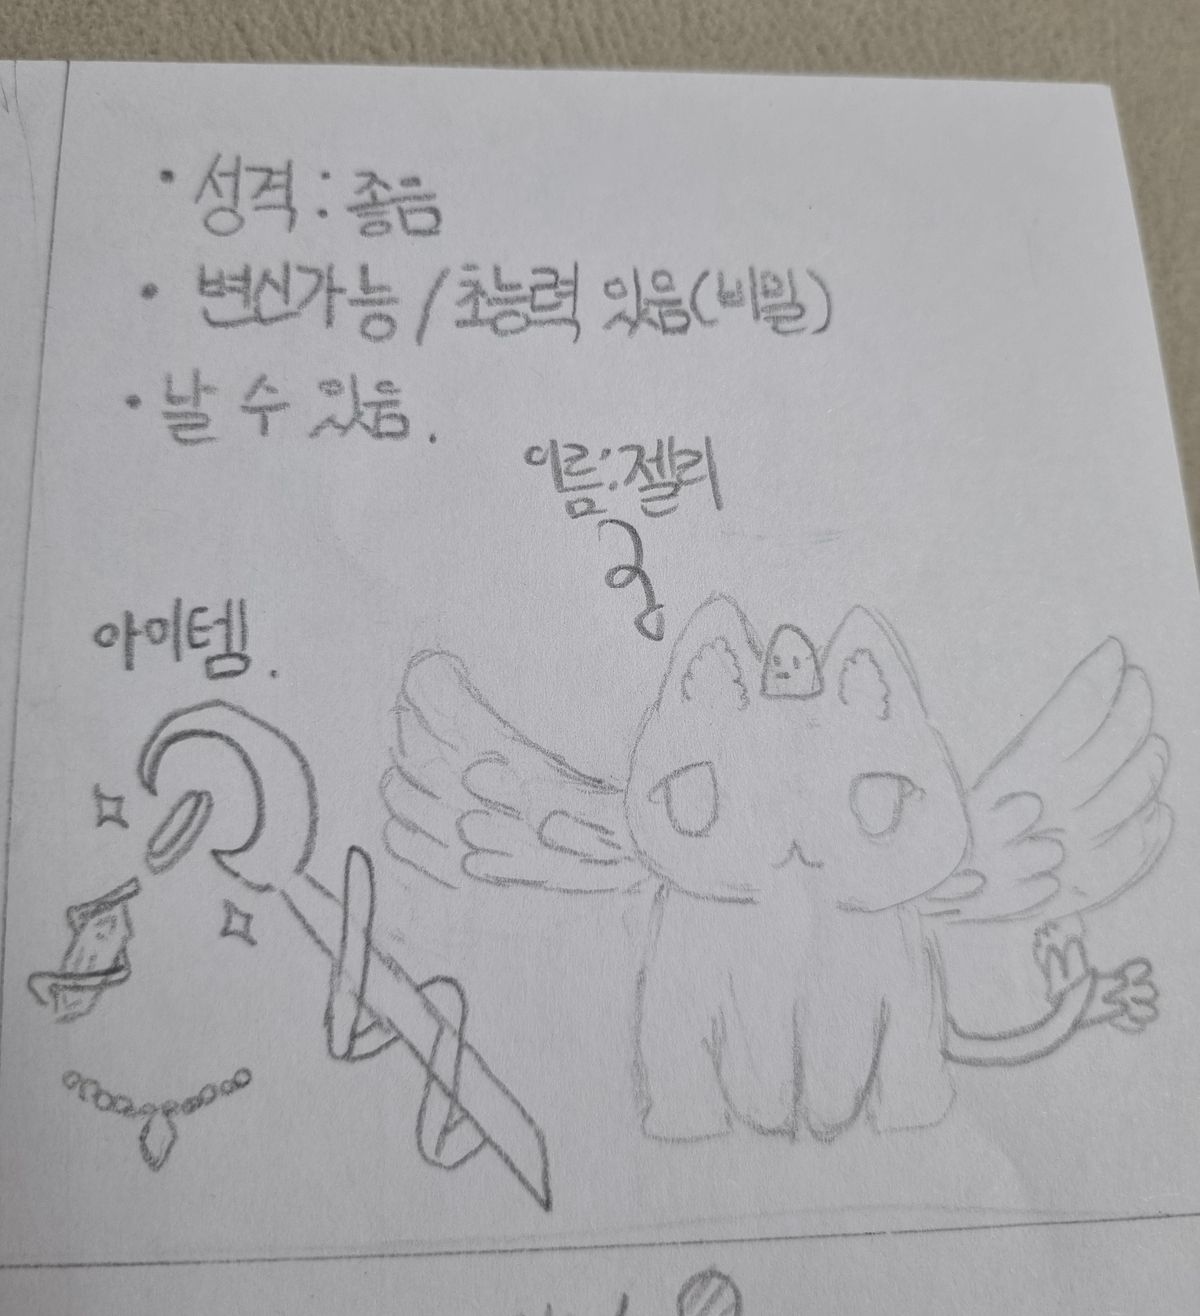 • 성격 : 좋음
• 변신가능 / 초능력 있음(비밀)
• 날 수 있음.
이름:젤리
아이템.